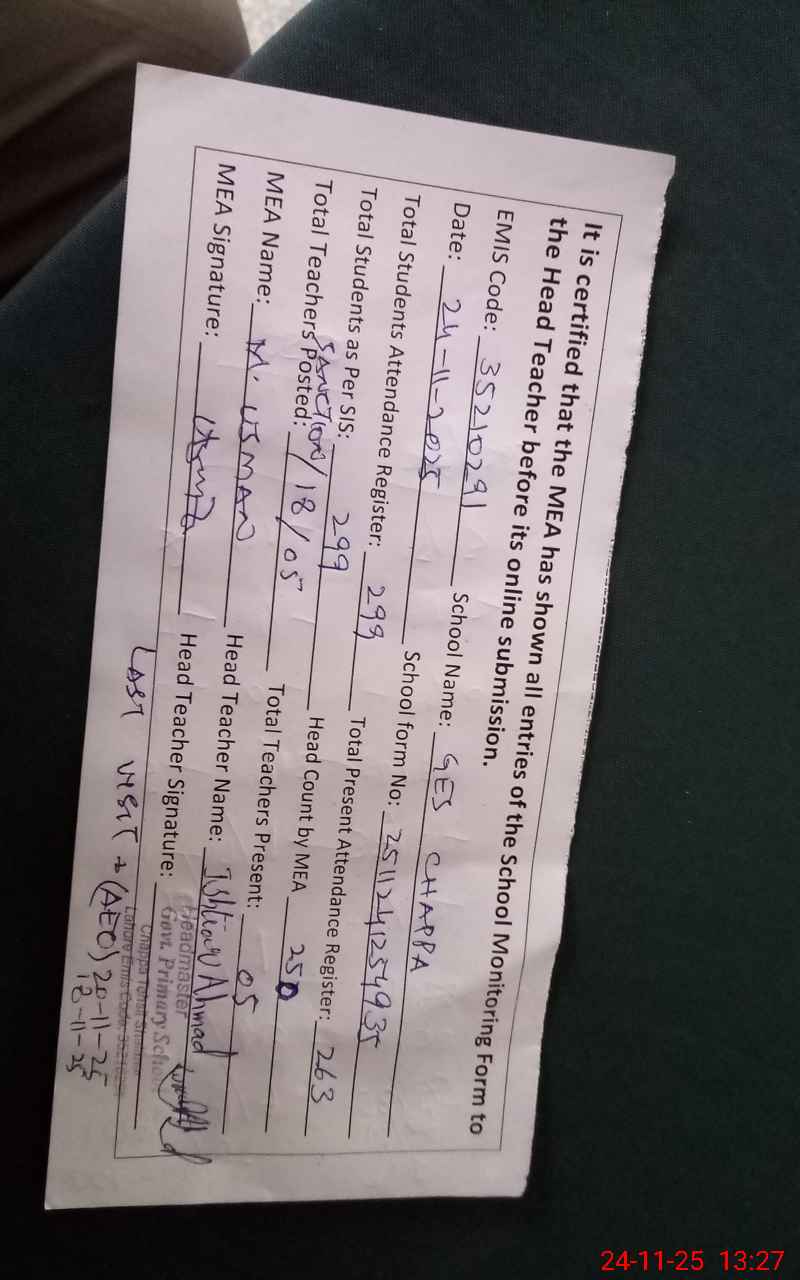 It is certified that the MEA has shown all entries of the School Monitoring Form to
the Head Teacher before its online submission.
EMIS Code: 35210291 School Name: GES CHAPPA
Date: 24-11-2025 School form No: 2511241254935
Total Students Attendance Register: 299 Total Present Attendance Register: 263
Total Students as Per SIS: 299 Head Count by MEA 250
SANCTION/18/05
Total Teachers Posted: Total Teachers Present: 05
MEA Name: M. USMAN Head Teacher Name: Ishtiaq Ahmad
MEA Signature: Head Teacher Signature:
Headmaster
Govt. Primary School
Chappa Tehsil
Lahore Emis Code:
LAST VISIT (AEO) 20-11-25
18-11-25
24-11-25 13:27